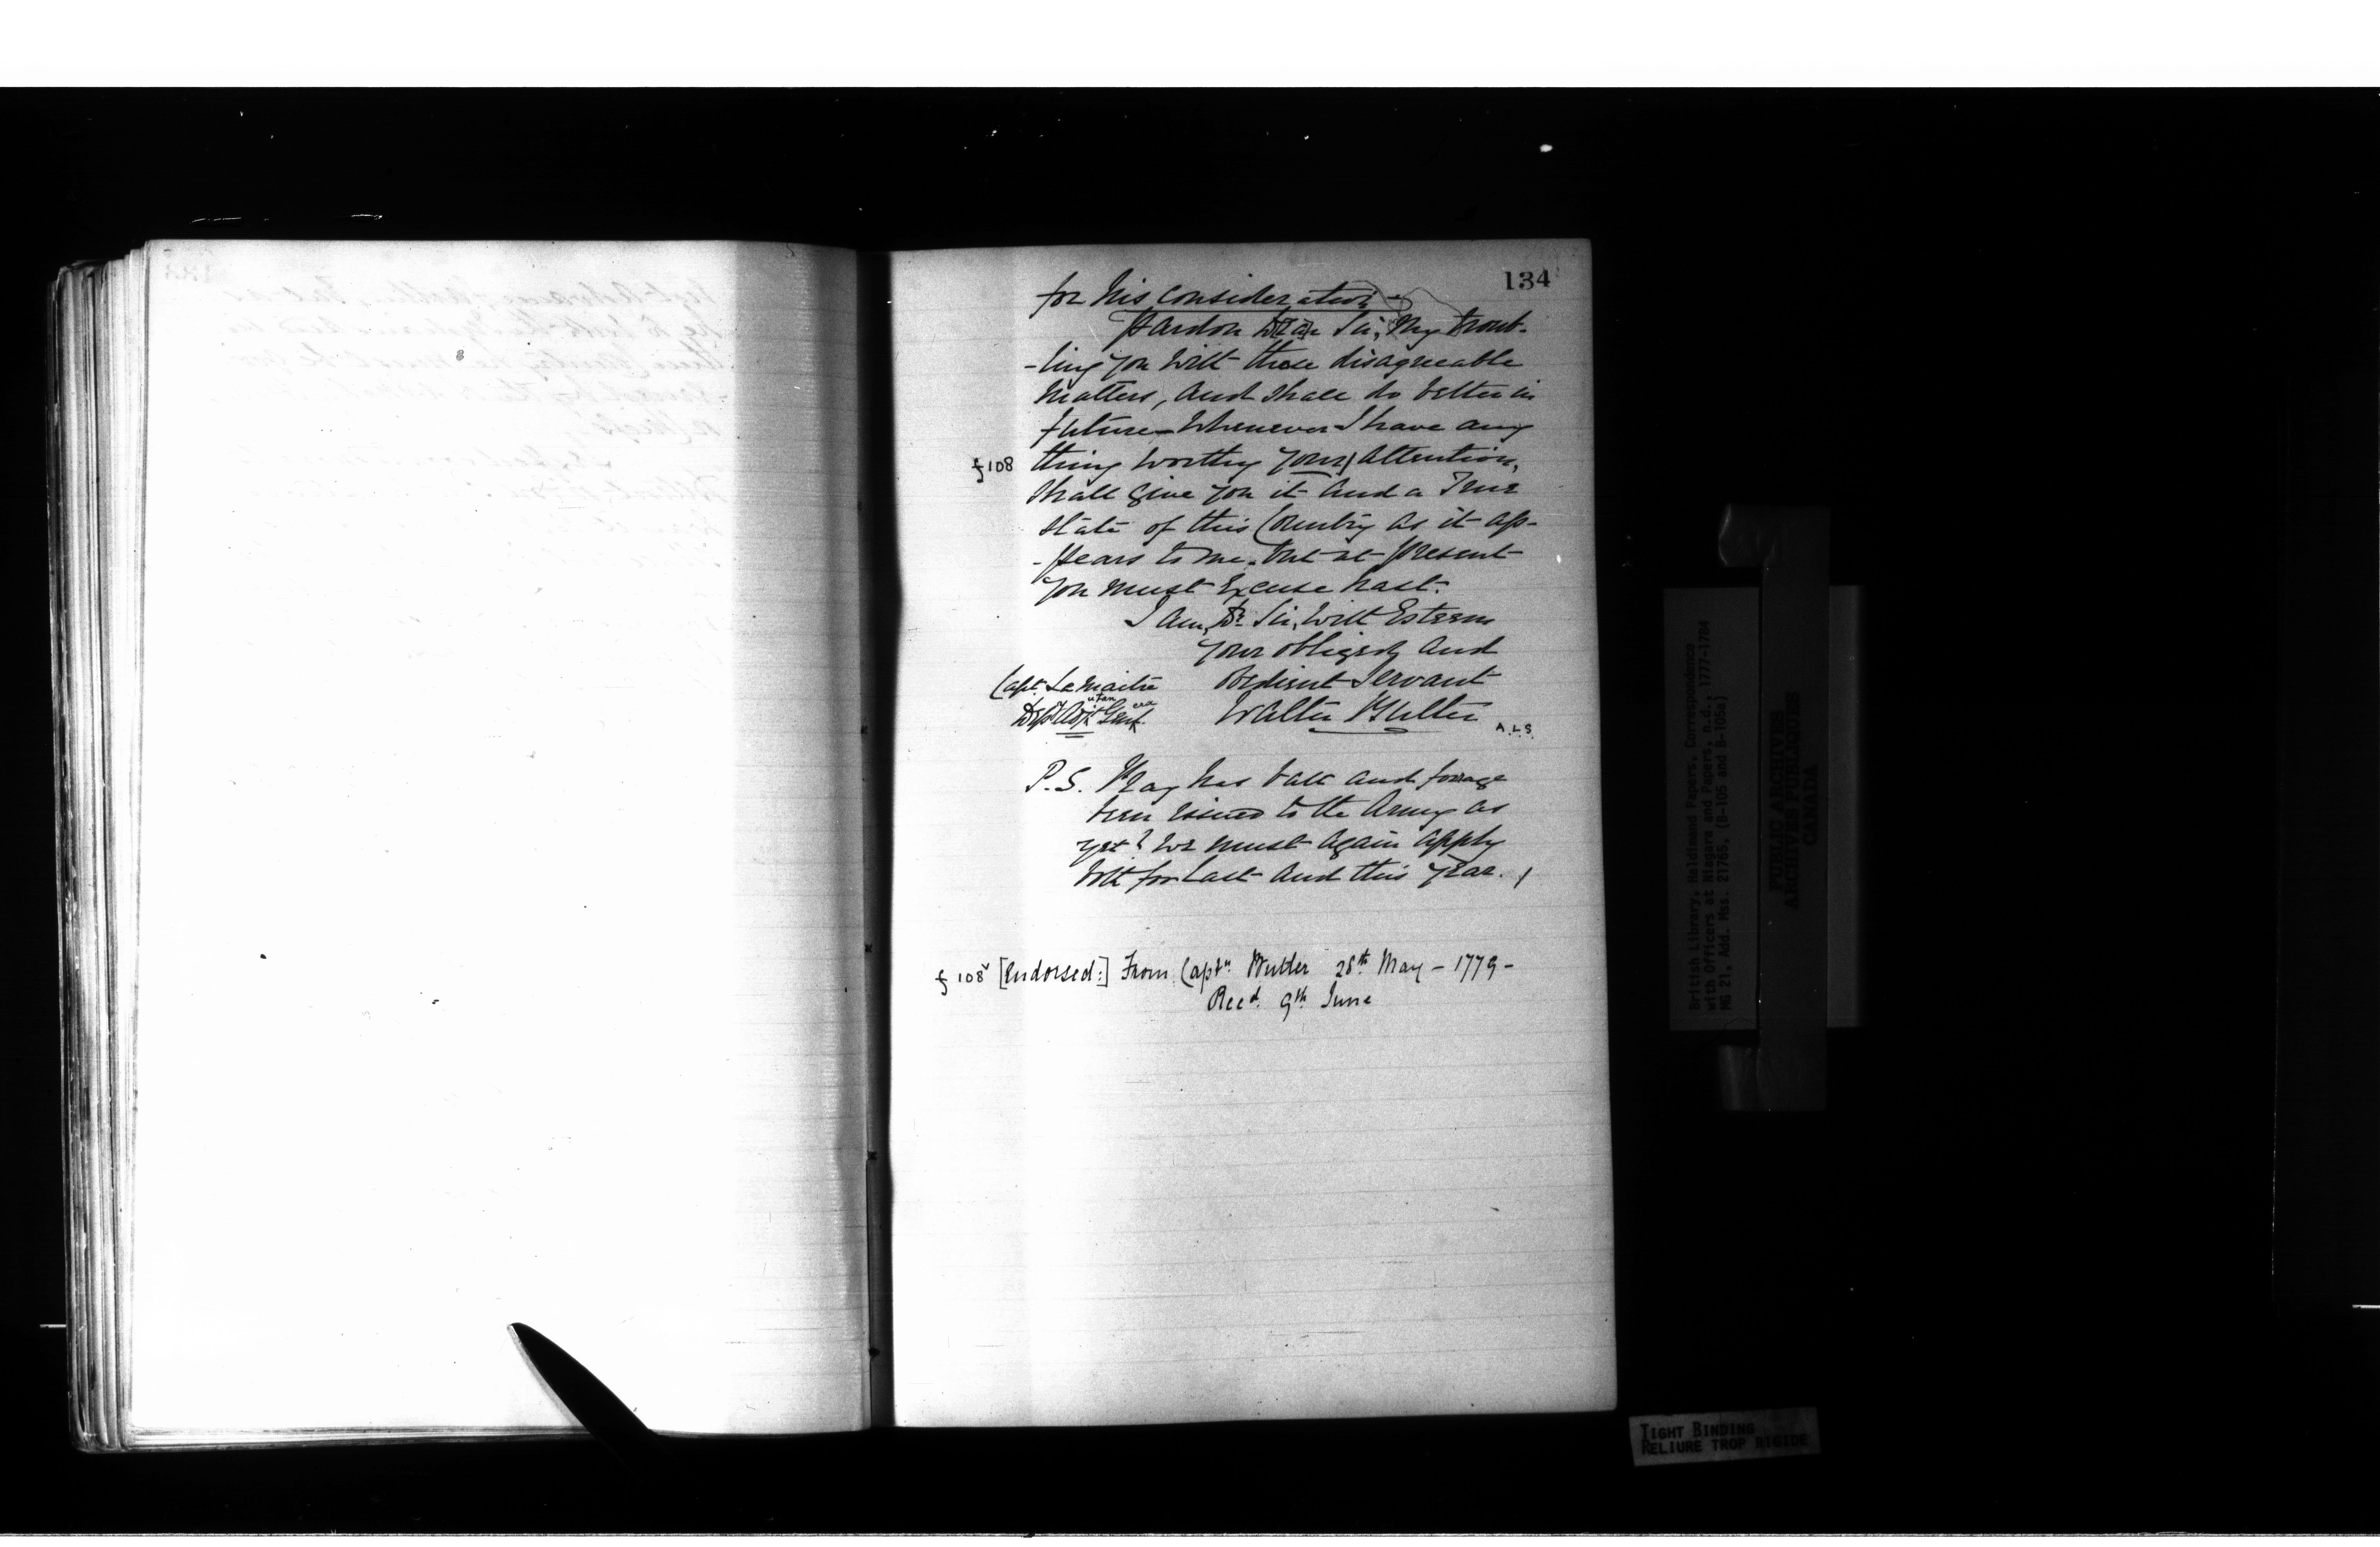 134
for his consideration -
Pardon Dear Sir, My troub-
-ling you with these disagreeable
Matters, and shall do better in
future - Whenever I have any
f 108 thing worthy your attention,
shall give you it and a True
state of this Country as it ap-
-pears to me. but at present
you must Excuse hast.
I am, Dr. Sir, with Esteem
your obliged and
Capt. Le Maitre Obedient Servant
Walter Butler A.L.S.
P.S. Pray has batt and forrage
been issued to the Army as
yet? we must again apply
both for Last and this year.
f 108v [Endorsed:] From Captn. Butler 28th May - 1779 -
Recd. 9th June
British Library, Haldimand Papers, Correspondence
with Officers at Niagara and Papers, n.d., 1777-1784
MG 21, Add. Mss. 21765, (B-105 and B-105a)
PUBLIC ARCHIVES
ARCHIVES PUBLIQUES
CANADA
TIGHT BINDING
RELIURE TROP RIGIDE